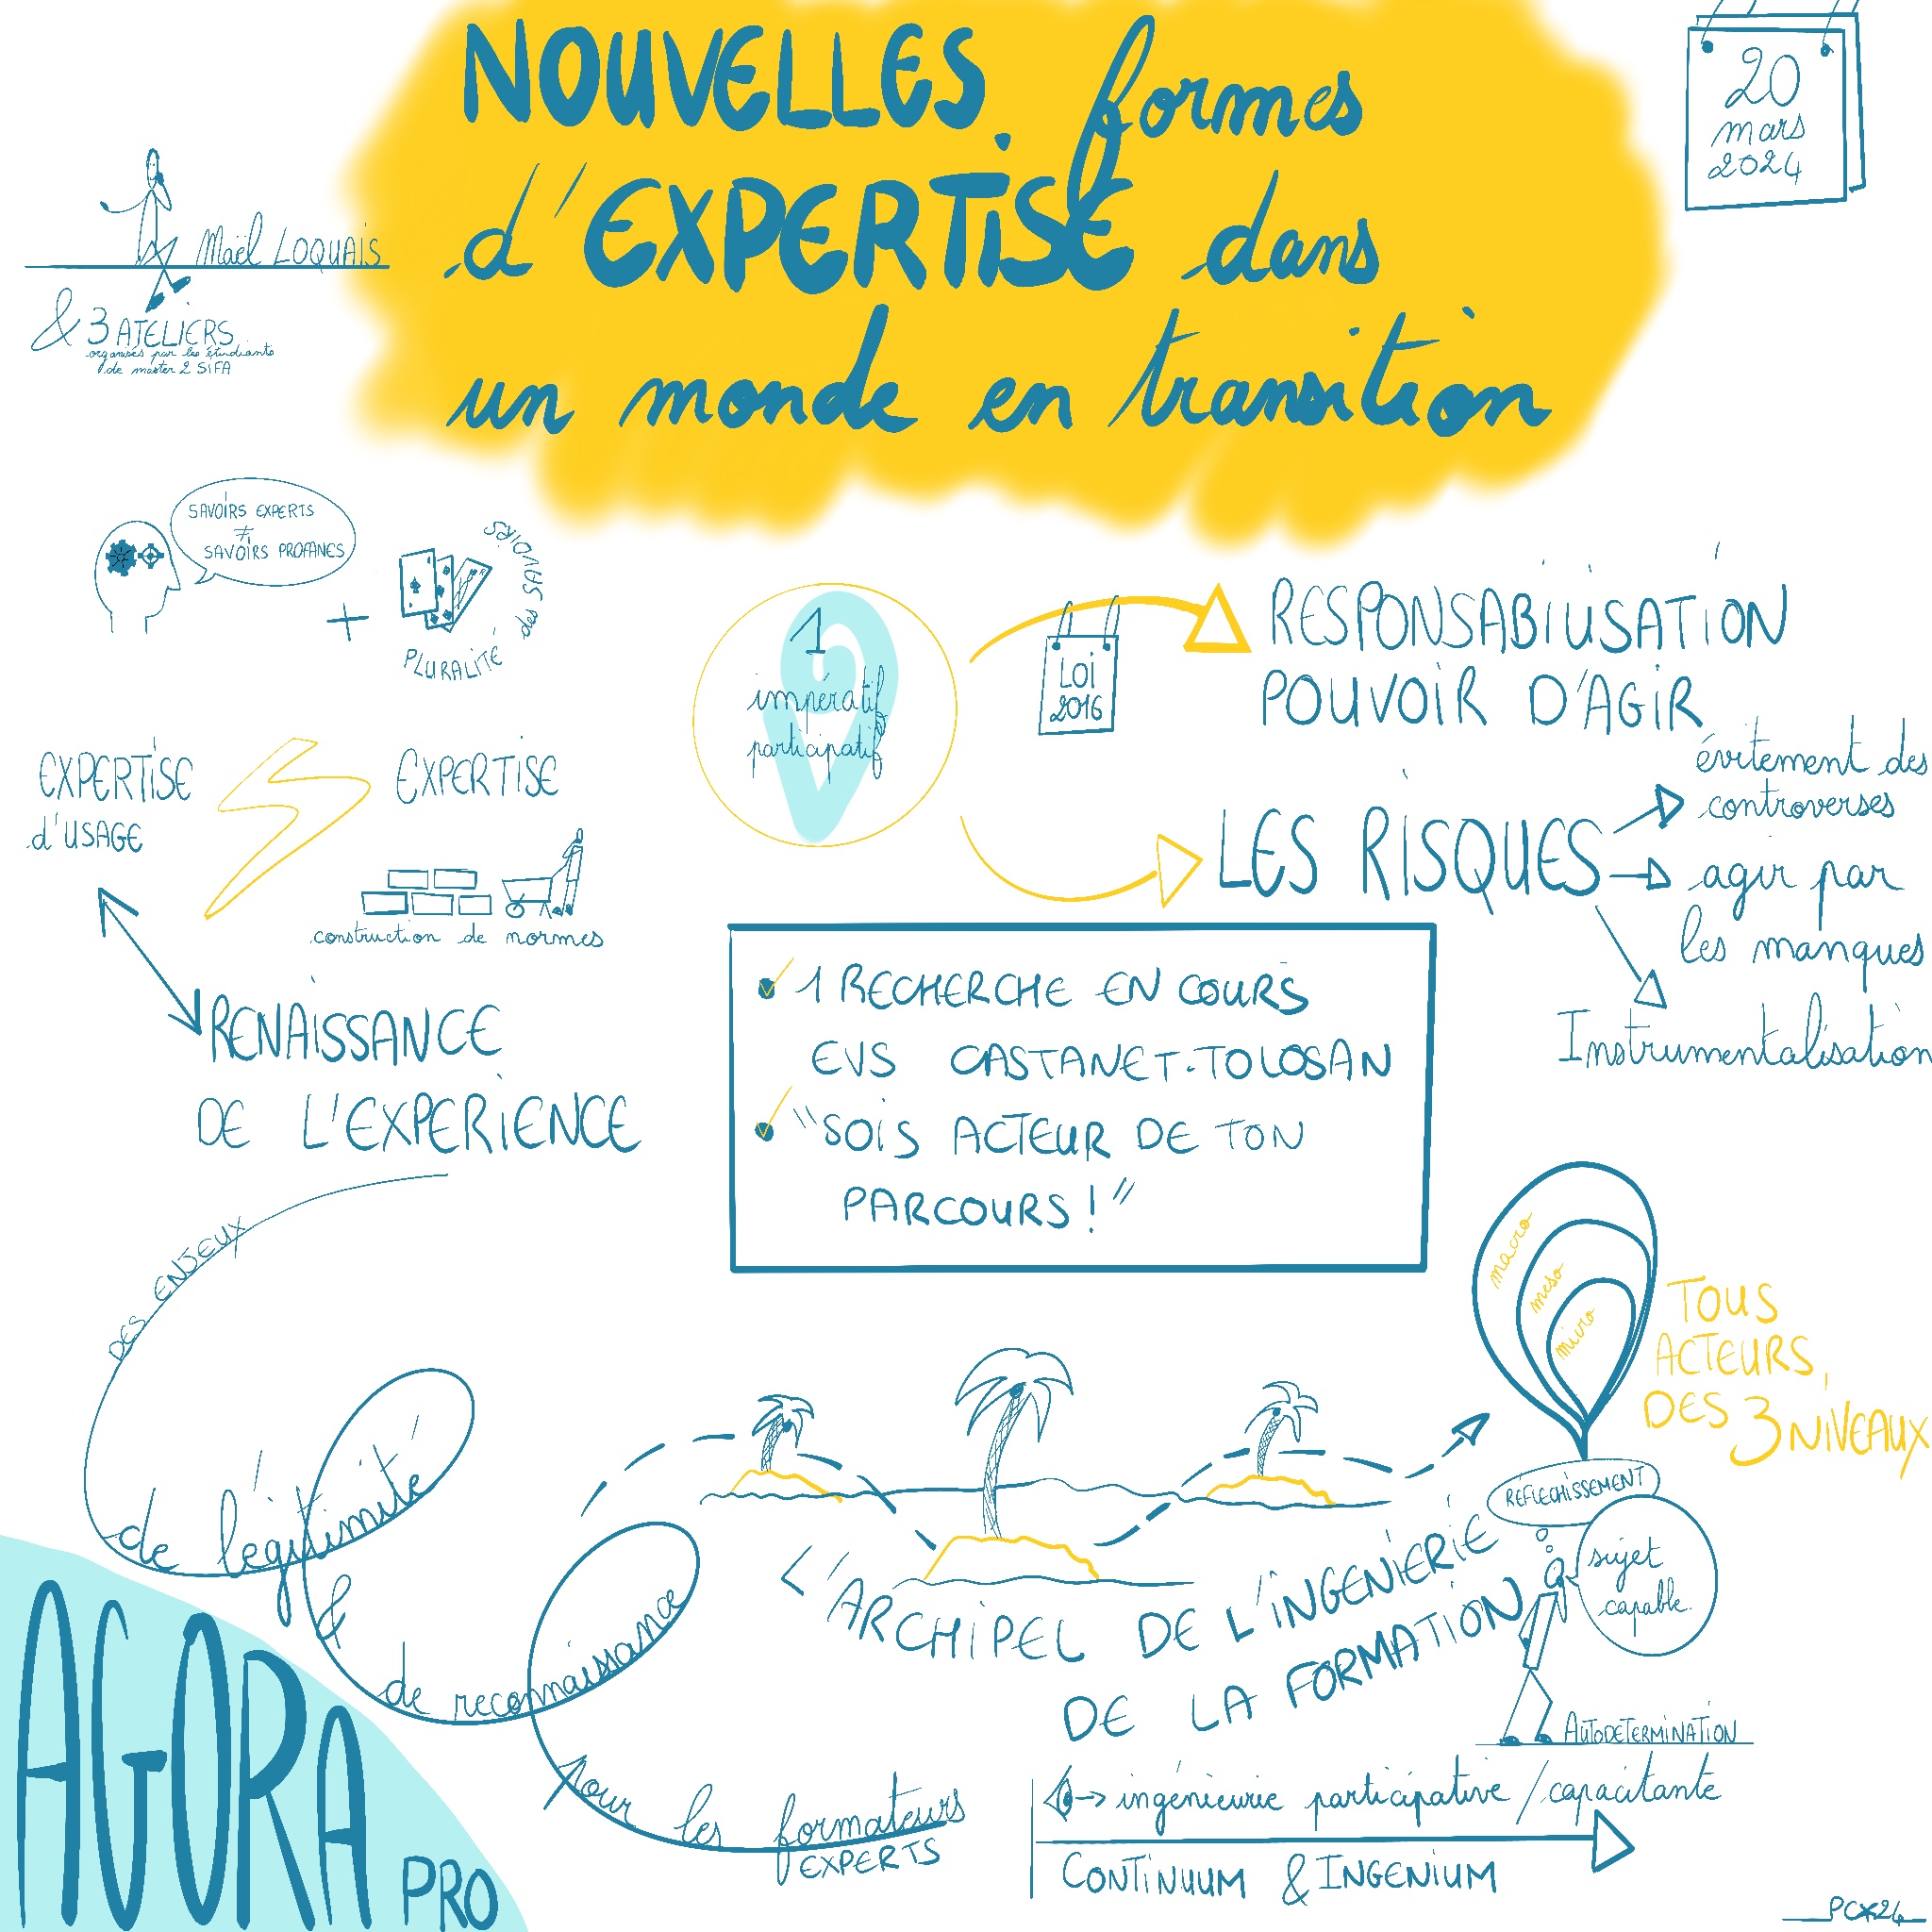 NOUVELLES formes
d'EXPERTISE dans
un monde en transition
20
mars
2024
Maël LOQUAIS
& 3 ATELIERS
organisés par les étudiants
de master 2 SIFA
SAVOIRS EXPERTS
≠
SAVOIRS PROFANES
+
PLURALITÉ
des SAVOIRS
EXPERTISE
d'USAGE
EXPERTISE
construction de normes
RENAISSANCE
DE L'EXPERIENCE
1
impératif
participatif
LOI
2016
RESPONSABILISATION
POUVOIR D'AGIR
LES RISQUES
évitement des
controverses
agir par
les manques
Instrumentalisation
1 RECHERCHE EN COURS
EVS CASTANET-TOLOSAN
"SOIS ACTEUR DE TON
PARCOURS!"
DES ENJEUX
de légitimité
&
de reconnaissance
pour les formateurs
EXPERTS
macro
meso
micro
TOUS
ACTEURS,
DES 3 NIVEAUX
RÉFLECHISSEMENT
sujet
capable.
AUTODETERMINATION
L'ARCHIPEL DE L'INGENIERIE
DE LA FORMATION
ingénieurie participative / capacitante
CONTINUUM & INGENIUM
AGORA
PRO
PCX24